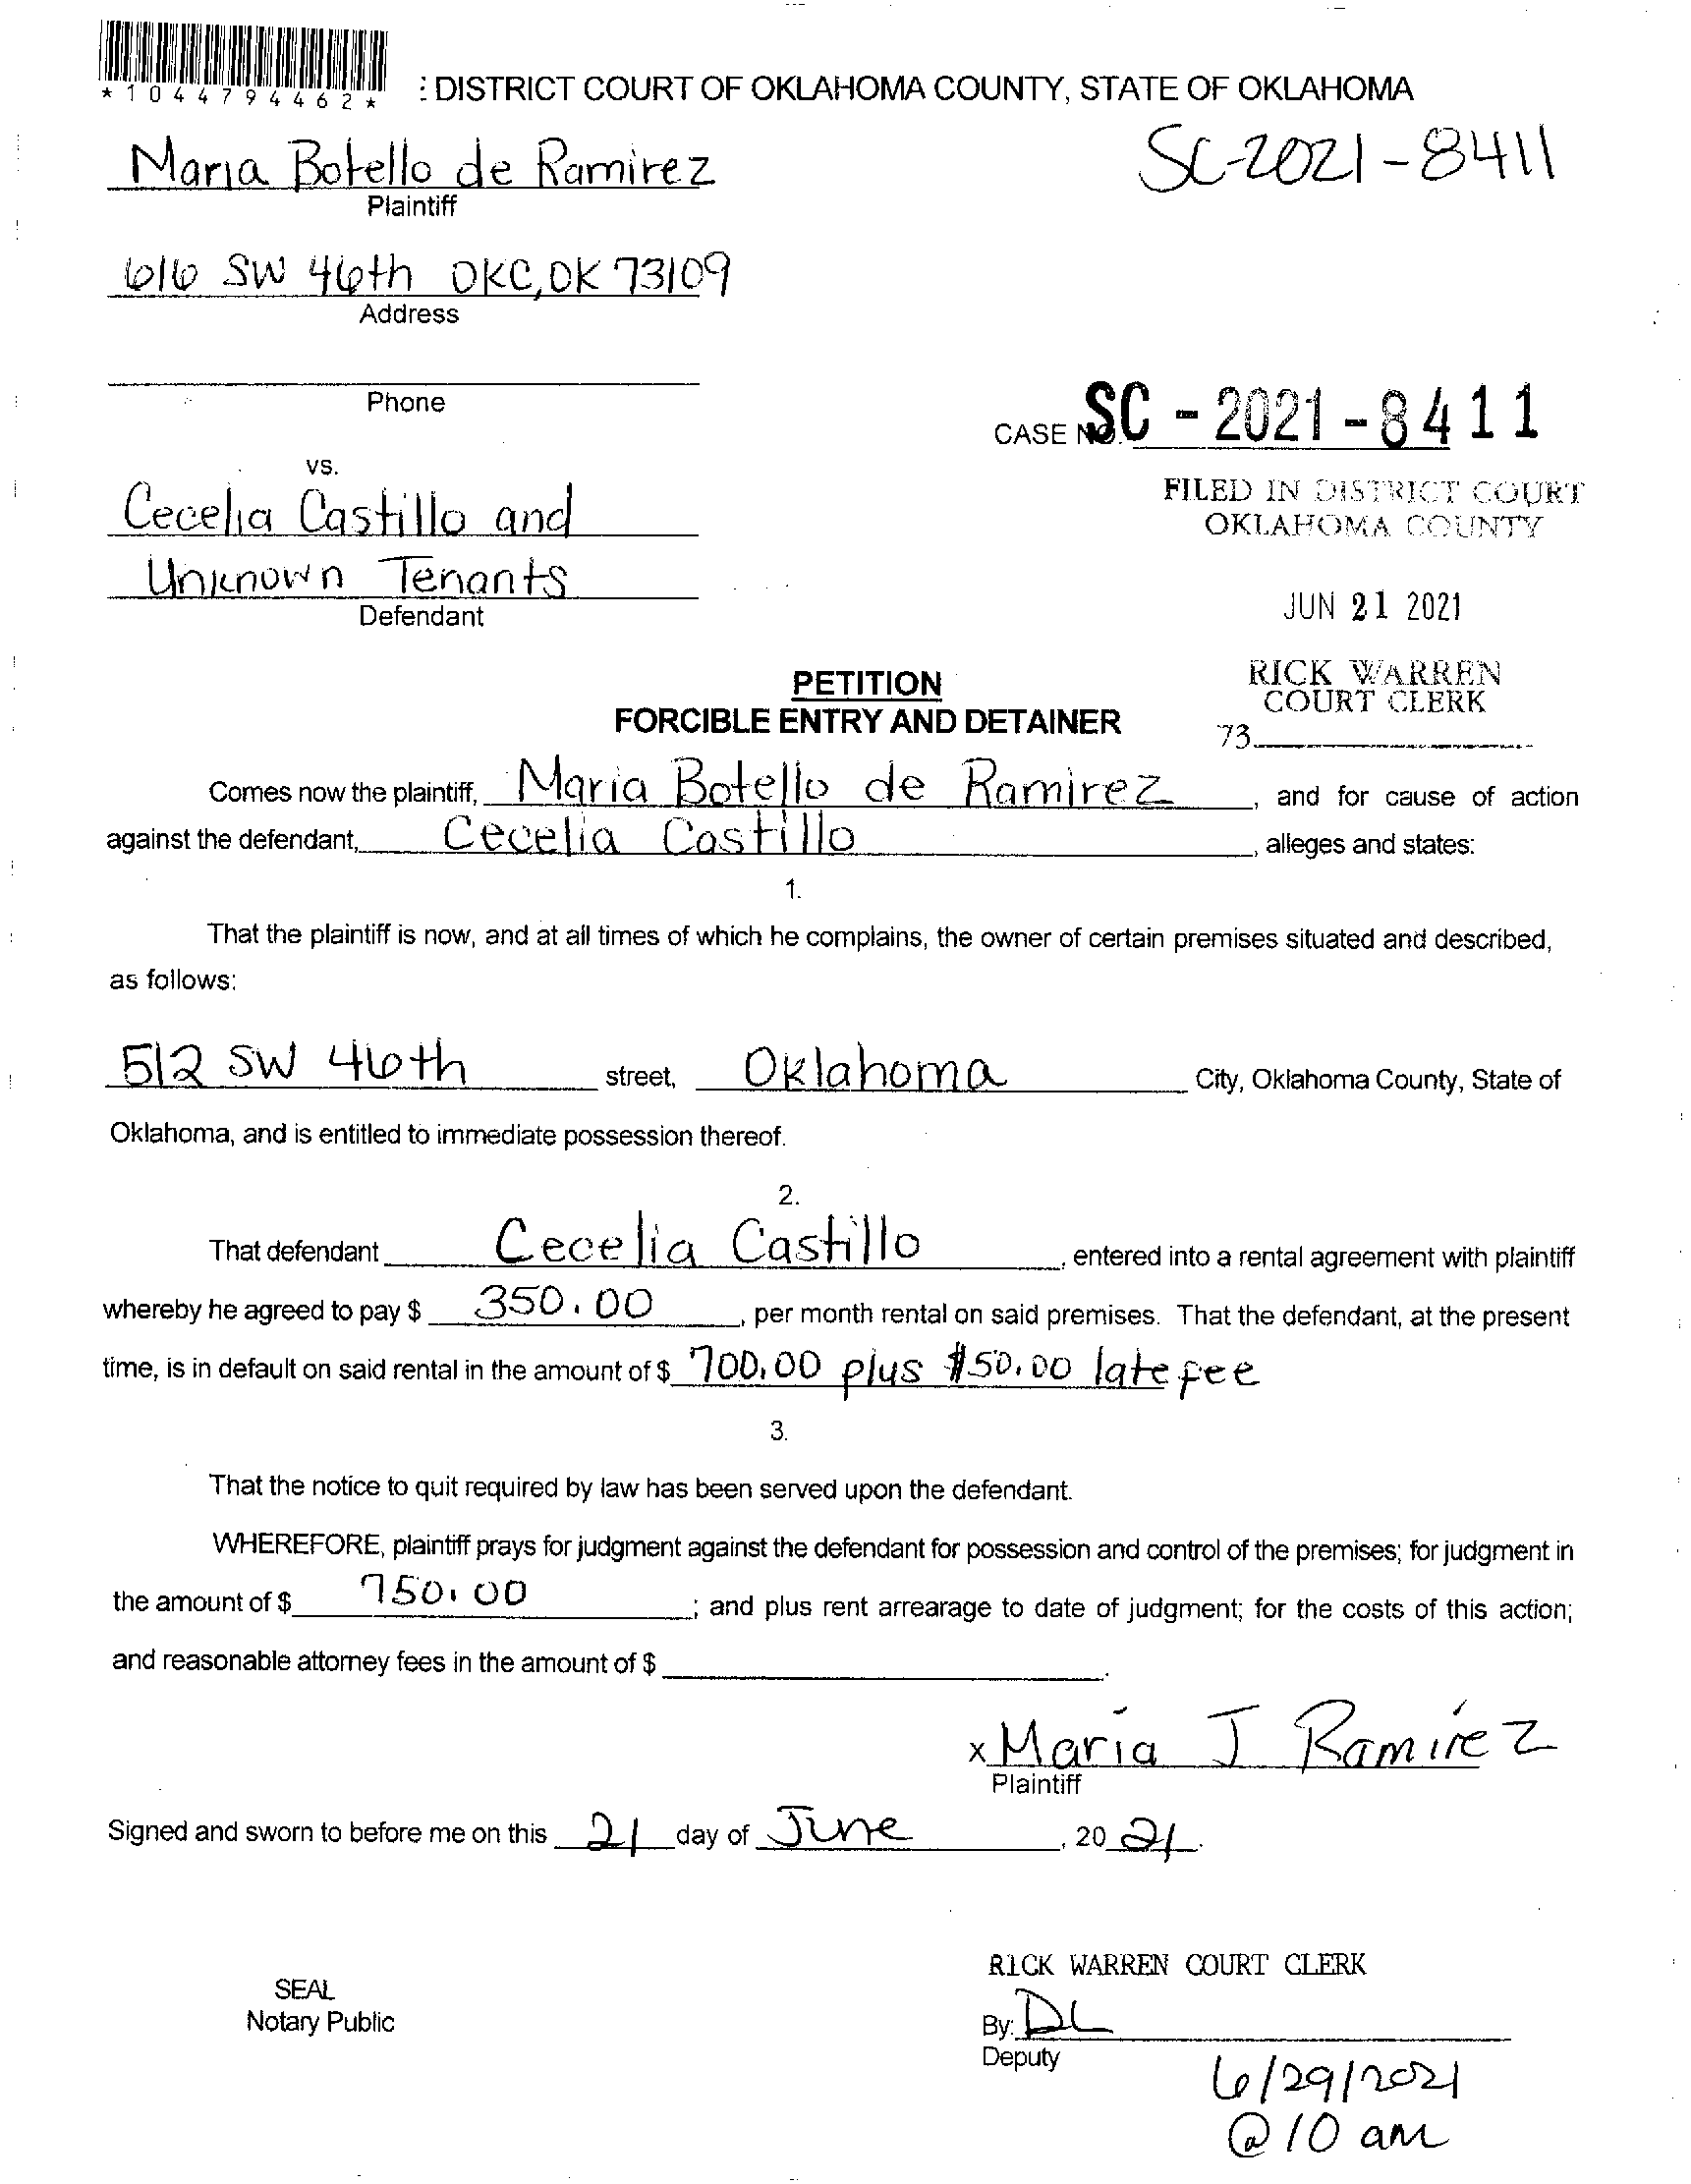 *1044794462*
: DISTRICT COURT OF OKLAHOMA COUNTY, STATE OF OKLAHOMA
Maria Botello de Ramirez
SC-2021-8411
Plaintiff
616 SW 46th OKC, OK 73109
Address
Phone
CASE NO. SC - 2021 - 8411
vs.
Cecelia Castillo and
FILED IN DISTRICT COURT
OKLAHOMA COUNTY
Unknown Tenants
Defendant
JUN 21 2021
RICK WARREN
COURT CLERK
73
PETITION
FORCIBLE ENTRY AND DETAINER
Comes now the plaintiff, Maria Botello de Ramirez, and for cause of action
against the defendant, Cecelia Castillo, alleges and states:
1.
That the plaintiff is now, and at all times of which he complains, the owner of certain premises situated and described,
as follows:
512 SW 46th street, Oklahoma City, Oklahoma County, State of
Oklahoma, and is entitled to immediate possession thereof.
2.
That defendant Cecelia Castillo, entered into a rental agreement with plaintiff
whereby he agreed to pay $ 350.00, per month rental on said premises. That the defendant, at the present
time, is in default on said rental in the amount of $ 700.00 plus $50.00 late fee
3.
That the notice to quit required by law has been served upon the defendant.
WHEREFORE, plaintiff prays for judgment against the defendant for possession and control of the premises; for judgment in
the amount of $ 750.00; and plus rent arrearage to date of judgment; for the costs of this action;
and reasonable attorney fees in the amount of $ .
x Maria J Ramirez
Plaintiff
Signed and sworn to before me on this 21 day of June, 20 21.
RICK WARREN COURT CLERK
SEAL
Notary Public
By: DL
Deputy
6/29/2021
@ 10 am